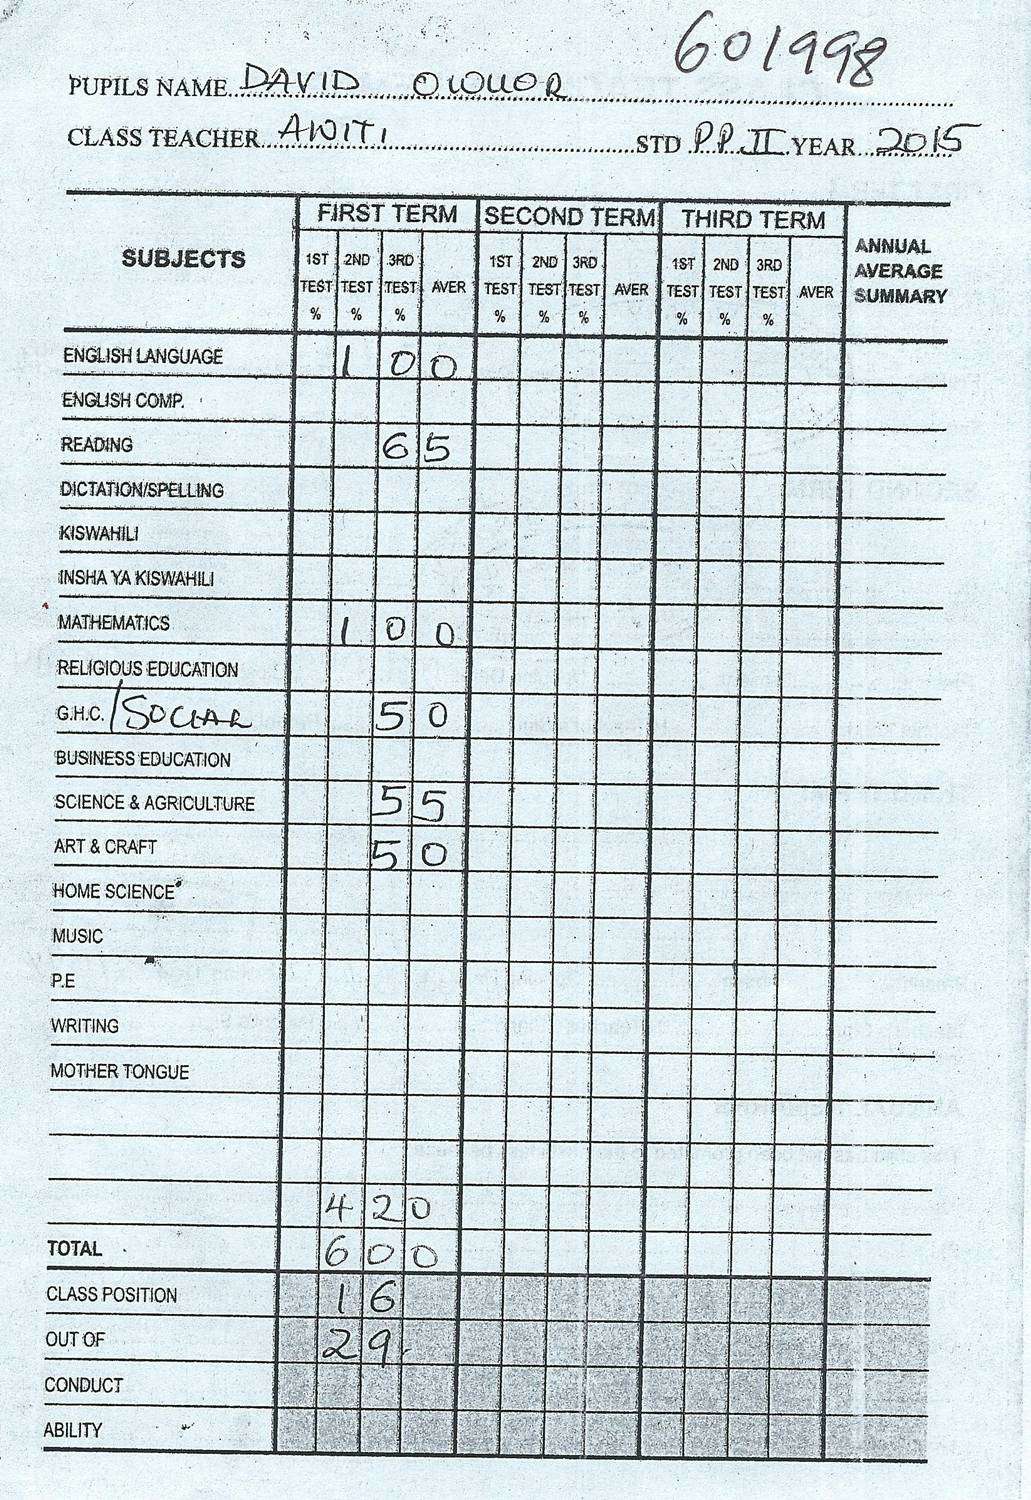 601998
PUPILS NAME DAVID OWUOR
CLASS TEACHER AWITI STD P.P. II YEAR 2015
SUBJECTS FIRST TERM SECOND TERM THIRD TERM ANNUAL AVERAGE SUMMARY
1ST TEST % 2ND TEST % 3RD TEST % AVER 1ST TEST % 2ND TEST % 3RD TEST % AVER 1ST TEST % 2ND TEST % 3RD TEST % AVER
ENGLISH LANGUAGE 1 0 0
ENGLISH COMP.
READING 6 5
DICTATION/SPELLING
KISWAHILI
INSHA YA KISWAHILI
MATHEMATICS 1 0 0
RELIGIOUS EDUCATION
G.H.C. /SOCIAL 5 0
BUSINESS EDUCATION
SCIENCE & AGRICULTURE 5 5
ART & CRAFT 5 0
HOME SCIENCE
MUSIC
P.E
WRITING
MOTHER TONGUE
4 2 0
TOTAL 6 0 0
CLASS POSITION 1 6
OUT OF 2 9
CONDUCT
ABILITY